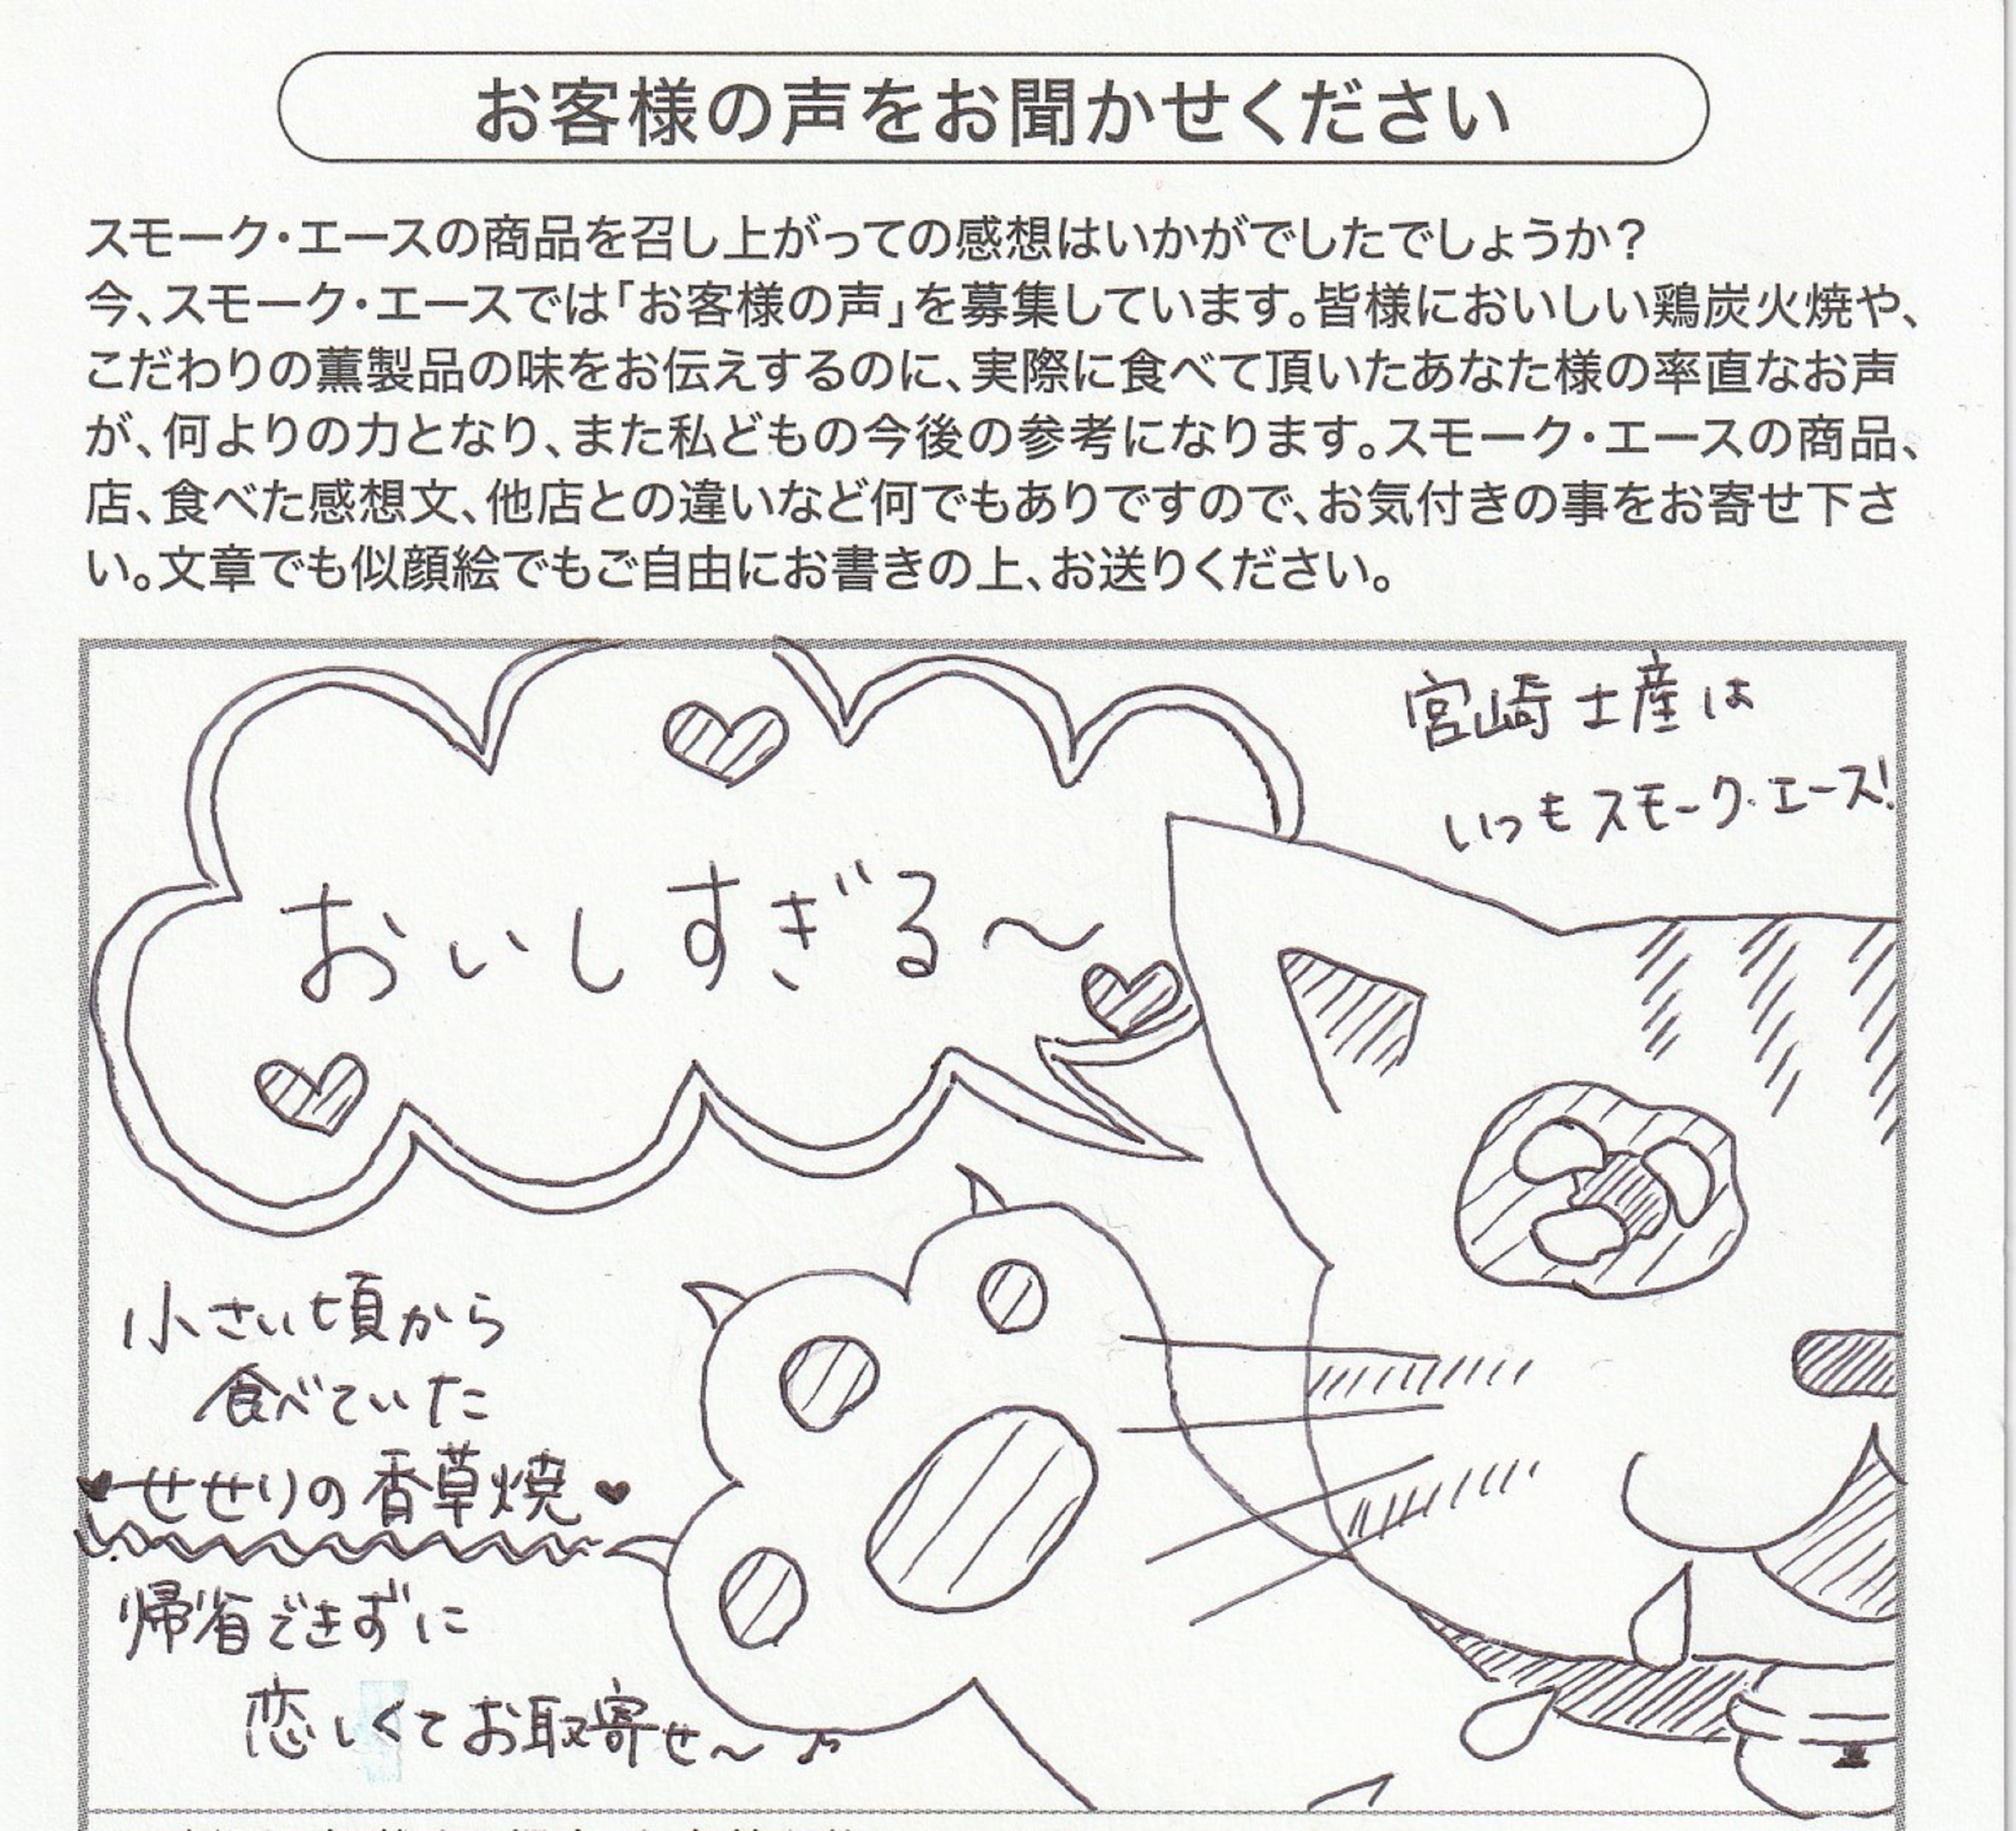 お客様の声をお聞かせください
スモーク・エースの商品を召し上がっての感想はいかがでしたでしょうか？
今、スモーク・エースでは「お客様の声」を募集しています。皆様においしい鶏炭火焼や、
こだわりの薫製品の味をお伝えするのに、実際に食べて頂いたあなた様の率直なお声
が、何よりの力となり、また私どもの今後の参考になります。スモーク・エースの商品、
店、食べた感想文、他店との違いなど何でもありですので、お気付きの事をお寄せ下さ
い。文章でも似顔絵でもご自由にお書きの上、お送りください。
宮崎土産は
いつもスモーク・エース!
おいしすぎる〜
小さい頃から
食べていた
♥せせりの香草焼♥
帰省できずに
恋しくてお取寄せ〜♪